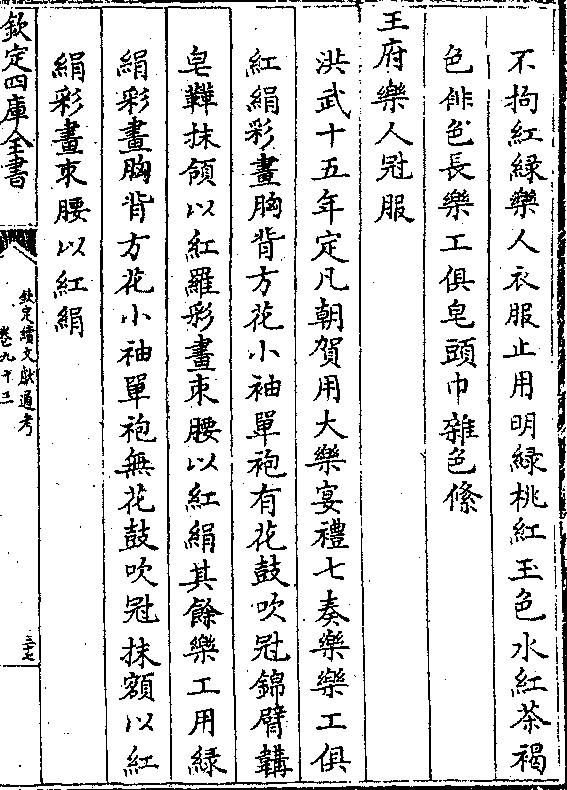 不拘紅緑樂人衣服止用明緑桃紅玉色水紅茶褐
色俳色長樂工俱皂頭巾雜色絛
王府樂人冠服
洪武十五年定凡朝賀用大樂宴禮七奏樂樂工俱
紅絹彩畫胸背方花小袖單袍有花鼓吹冠錦臂韝
皂鞾抹領以紅羅彩畫束腰以紅絹其餘樂工用緑
絹彩畫胸背方花小袖單袍無花鼓吹冠抹額以紅
絹彩畫束腰以紅絹
欽定四庫全書
欽定續文獻通考
卷九十三
三十七